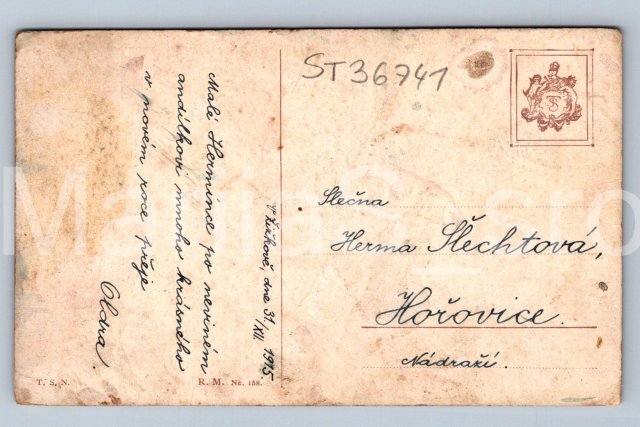 ST36741
TS
Malé Hermínce po nevinném
andílkovi mnoho krásného
v novém roce přeje
Oldra.
V Žižkově, dne 31/XII 1915.
Slečna
Herma Šlechtová,
Hořovice.
Nádraží.
T. S. N.
R. M. No. 158.